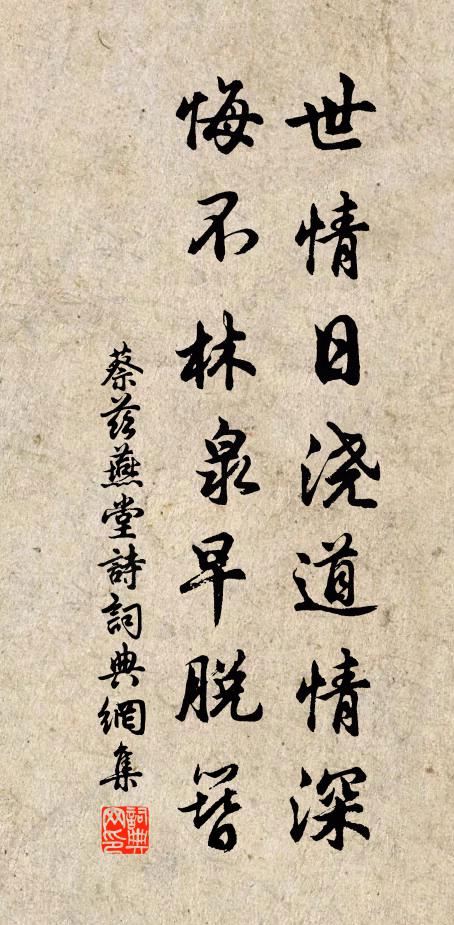 世情日浇道情深
悔不林泉早脱簪
蔡兹燕堂詩詞典網集
詞典網印